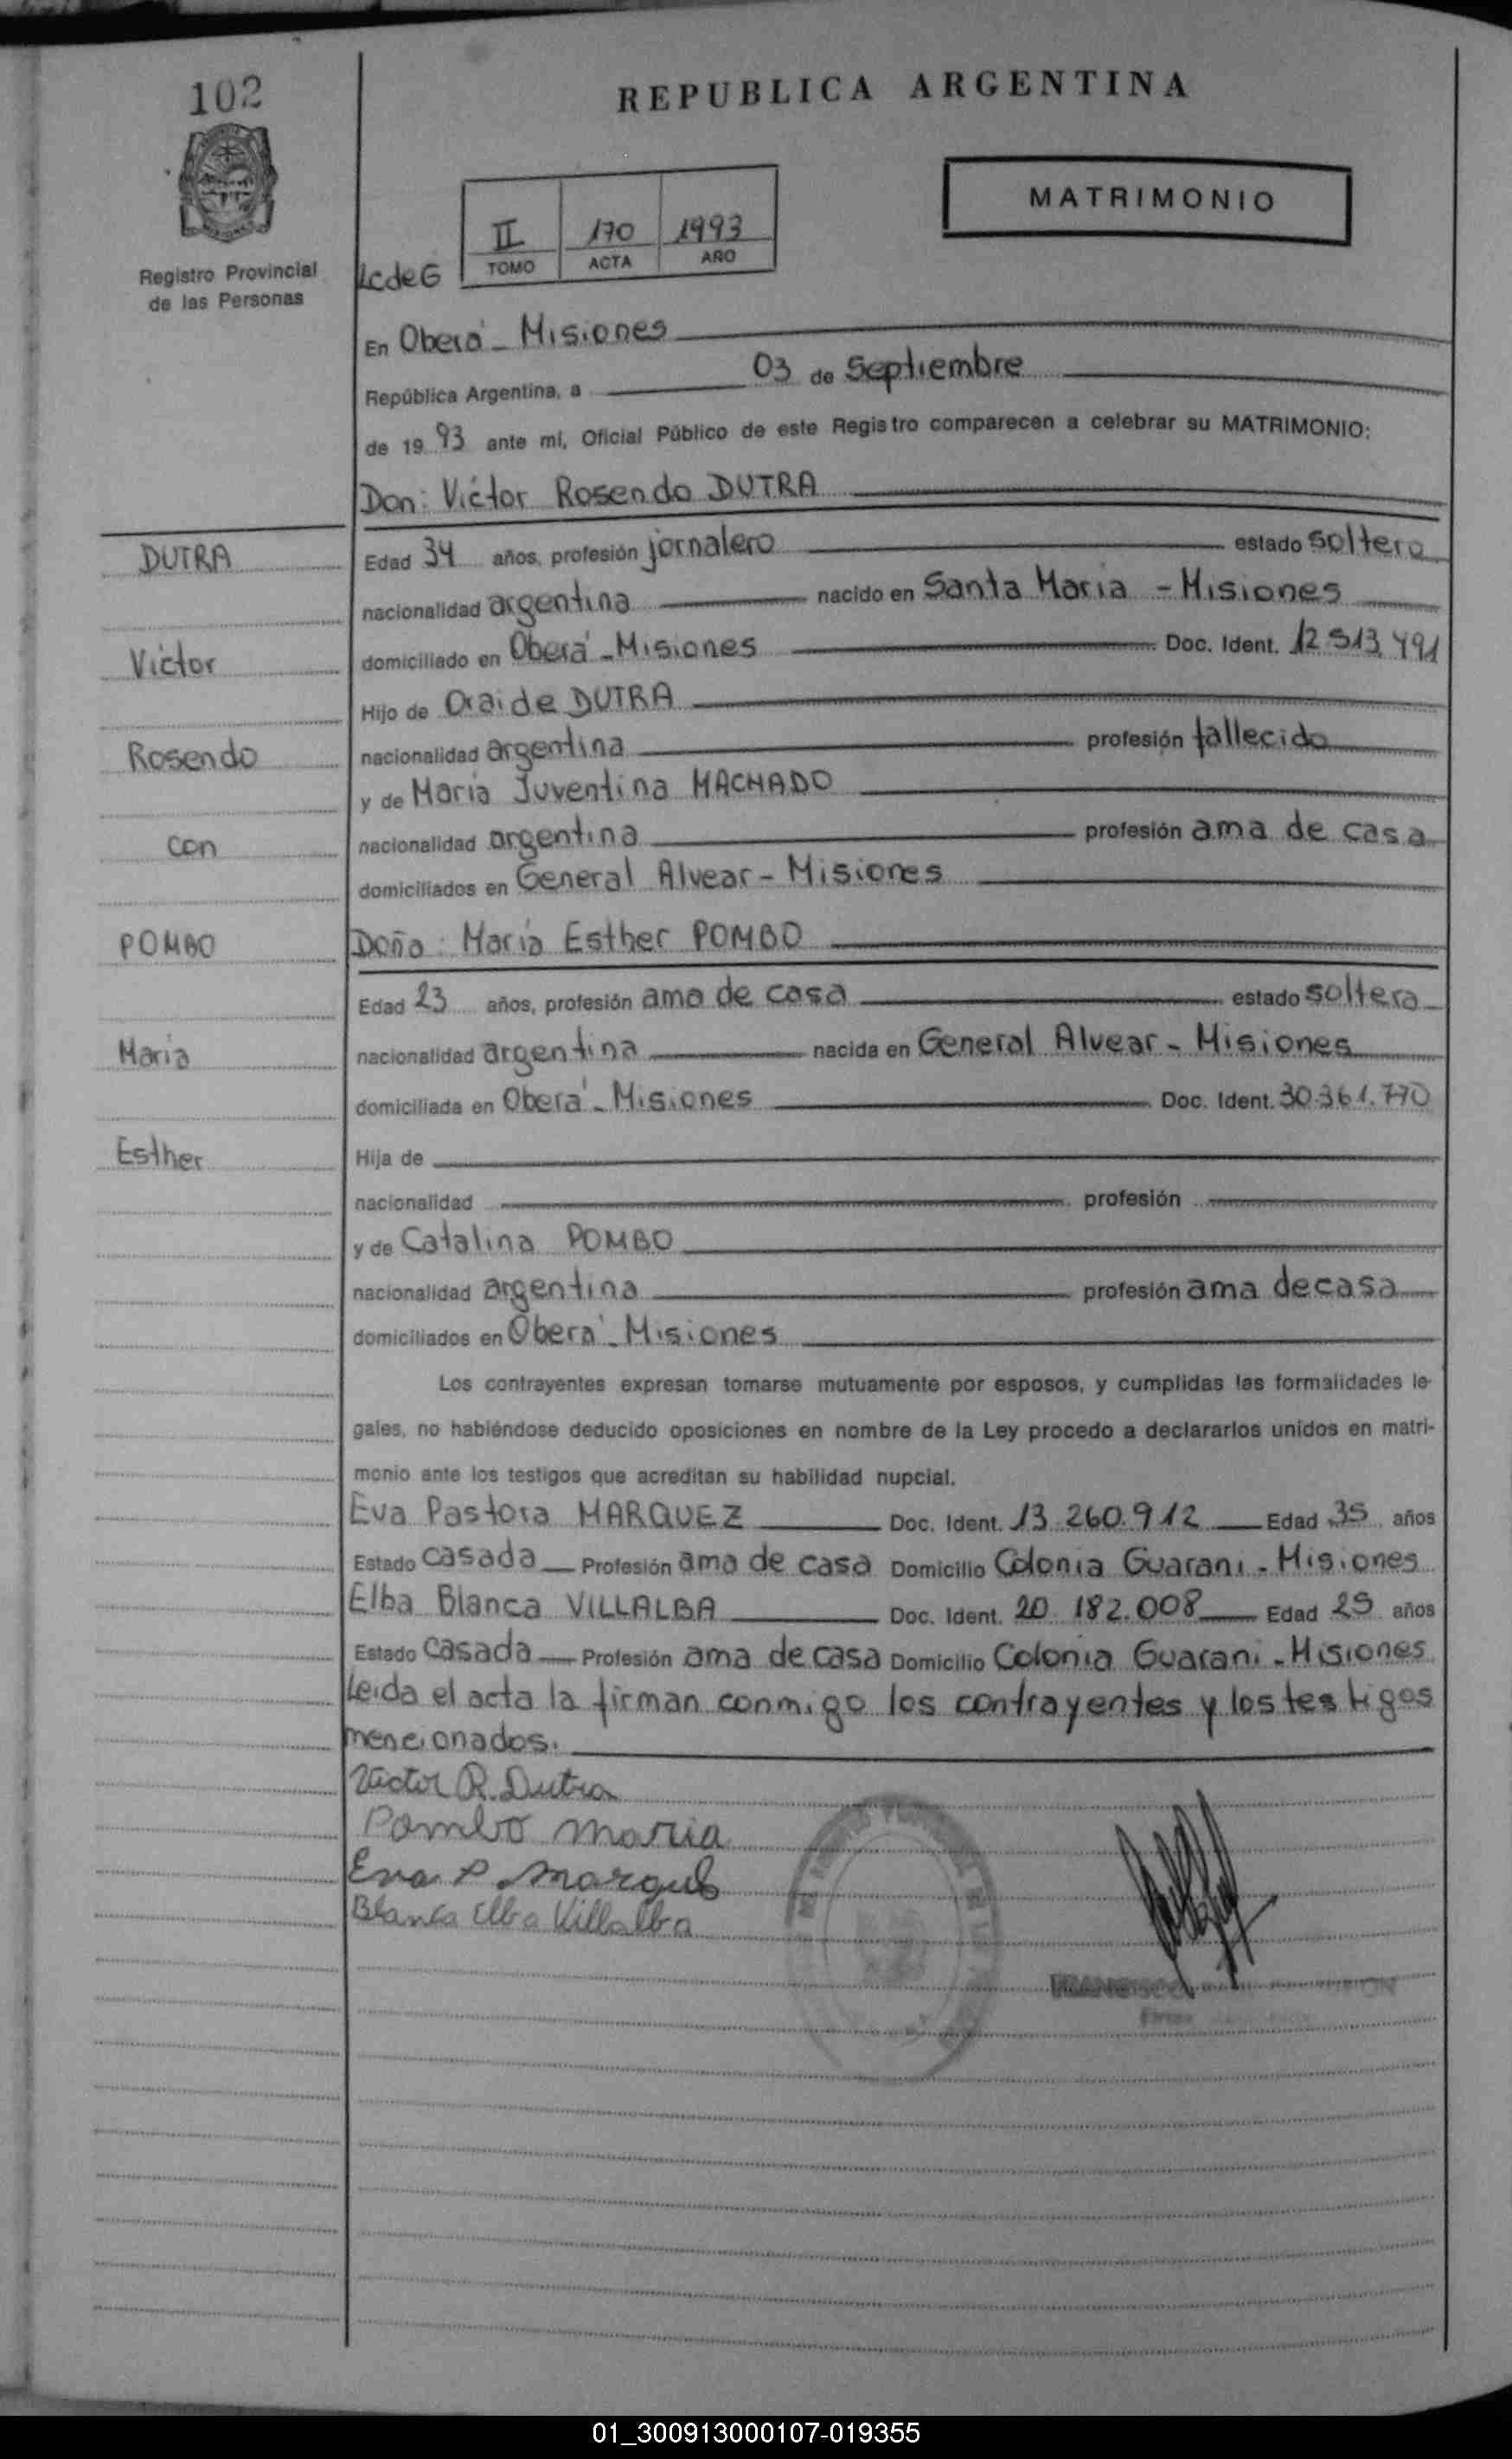 102
REPUBLICA ARGENTINA
MATRIMONIO
II 170 1993
TOMO ACTA AÑO
Registro Provincial
de las Personas
LcdeG
En Oberá - Misiones
República Argentina, a 03 de Septiembre
de 1993 ante mí, Oficial Público de este Registro comparecen a celebrar su MATRIMONIO:
Don: Victor Rosendo DUTRA
DUTRA
Edad 34 años, profesión jornalero estado soltero
nacionalidad argentina nacido en Santa Maria - Misiones
Victor
domiciliado en Oberá - Misiones Doc. Ident. 12.513.491
Hijo de Oraide DUTRA
Rosendo
nacionalidad argentina profesión fallecido
y de María Juventina MACHADO
con
nacionalidad argentina profesión ama de casa
domiciliados en General Alvear - Misiones
POMBO
Doña: María Esther POMBO
Edad 23 años, profesión ama de casa estado soltera
Maria
nacionalidad argentina nacida en General Alvear - Misiones
domiciliada en Oberá - Misiones Doc. Ident. 30.361.770
Esther
Hija de
nacionalidad profesión
y de Catalina POMBO
nacionalidad argentina profesión ama de casa
domiciliados en Oberá - Misiones
Los contrayentes expresan tomarse mutuamente por esposos, y cumplidas las formalidades le-
gales, no habiéndose deducido oposiciones en nombre de la Ley procedo a declararlos unidos en matri-
monio ante los testigos que acreditan su habilidad nupcial.
Eva Pastora MARQUEZ Doc. Ident. 13.260.912 Edad 35 años
Estado casada Profesión ama de casa Domicilio Colonia Guarani - Misiones
Elba Blanca VILLALBA Doc. Ident. 20.182.008 Edad 25 años
Estado casada Profesión ama de casa Domicilio Colonia Guarani - Misiones
Leida el acta la firman conmigo los contrayentes y los testigos
mencionados.
Victor R. Dutra
Pombo maria
Eva P. Marques
Blanca Elba Villalba
FRANCISCO
01_300913000107-019355